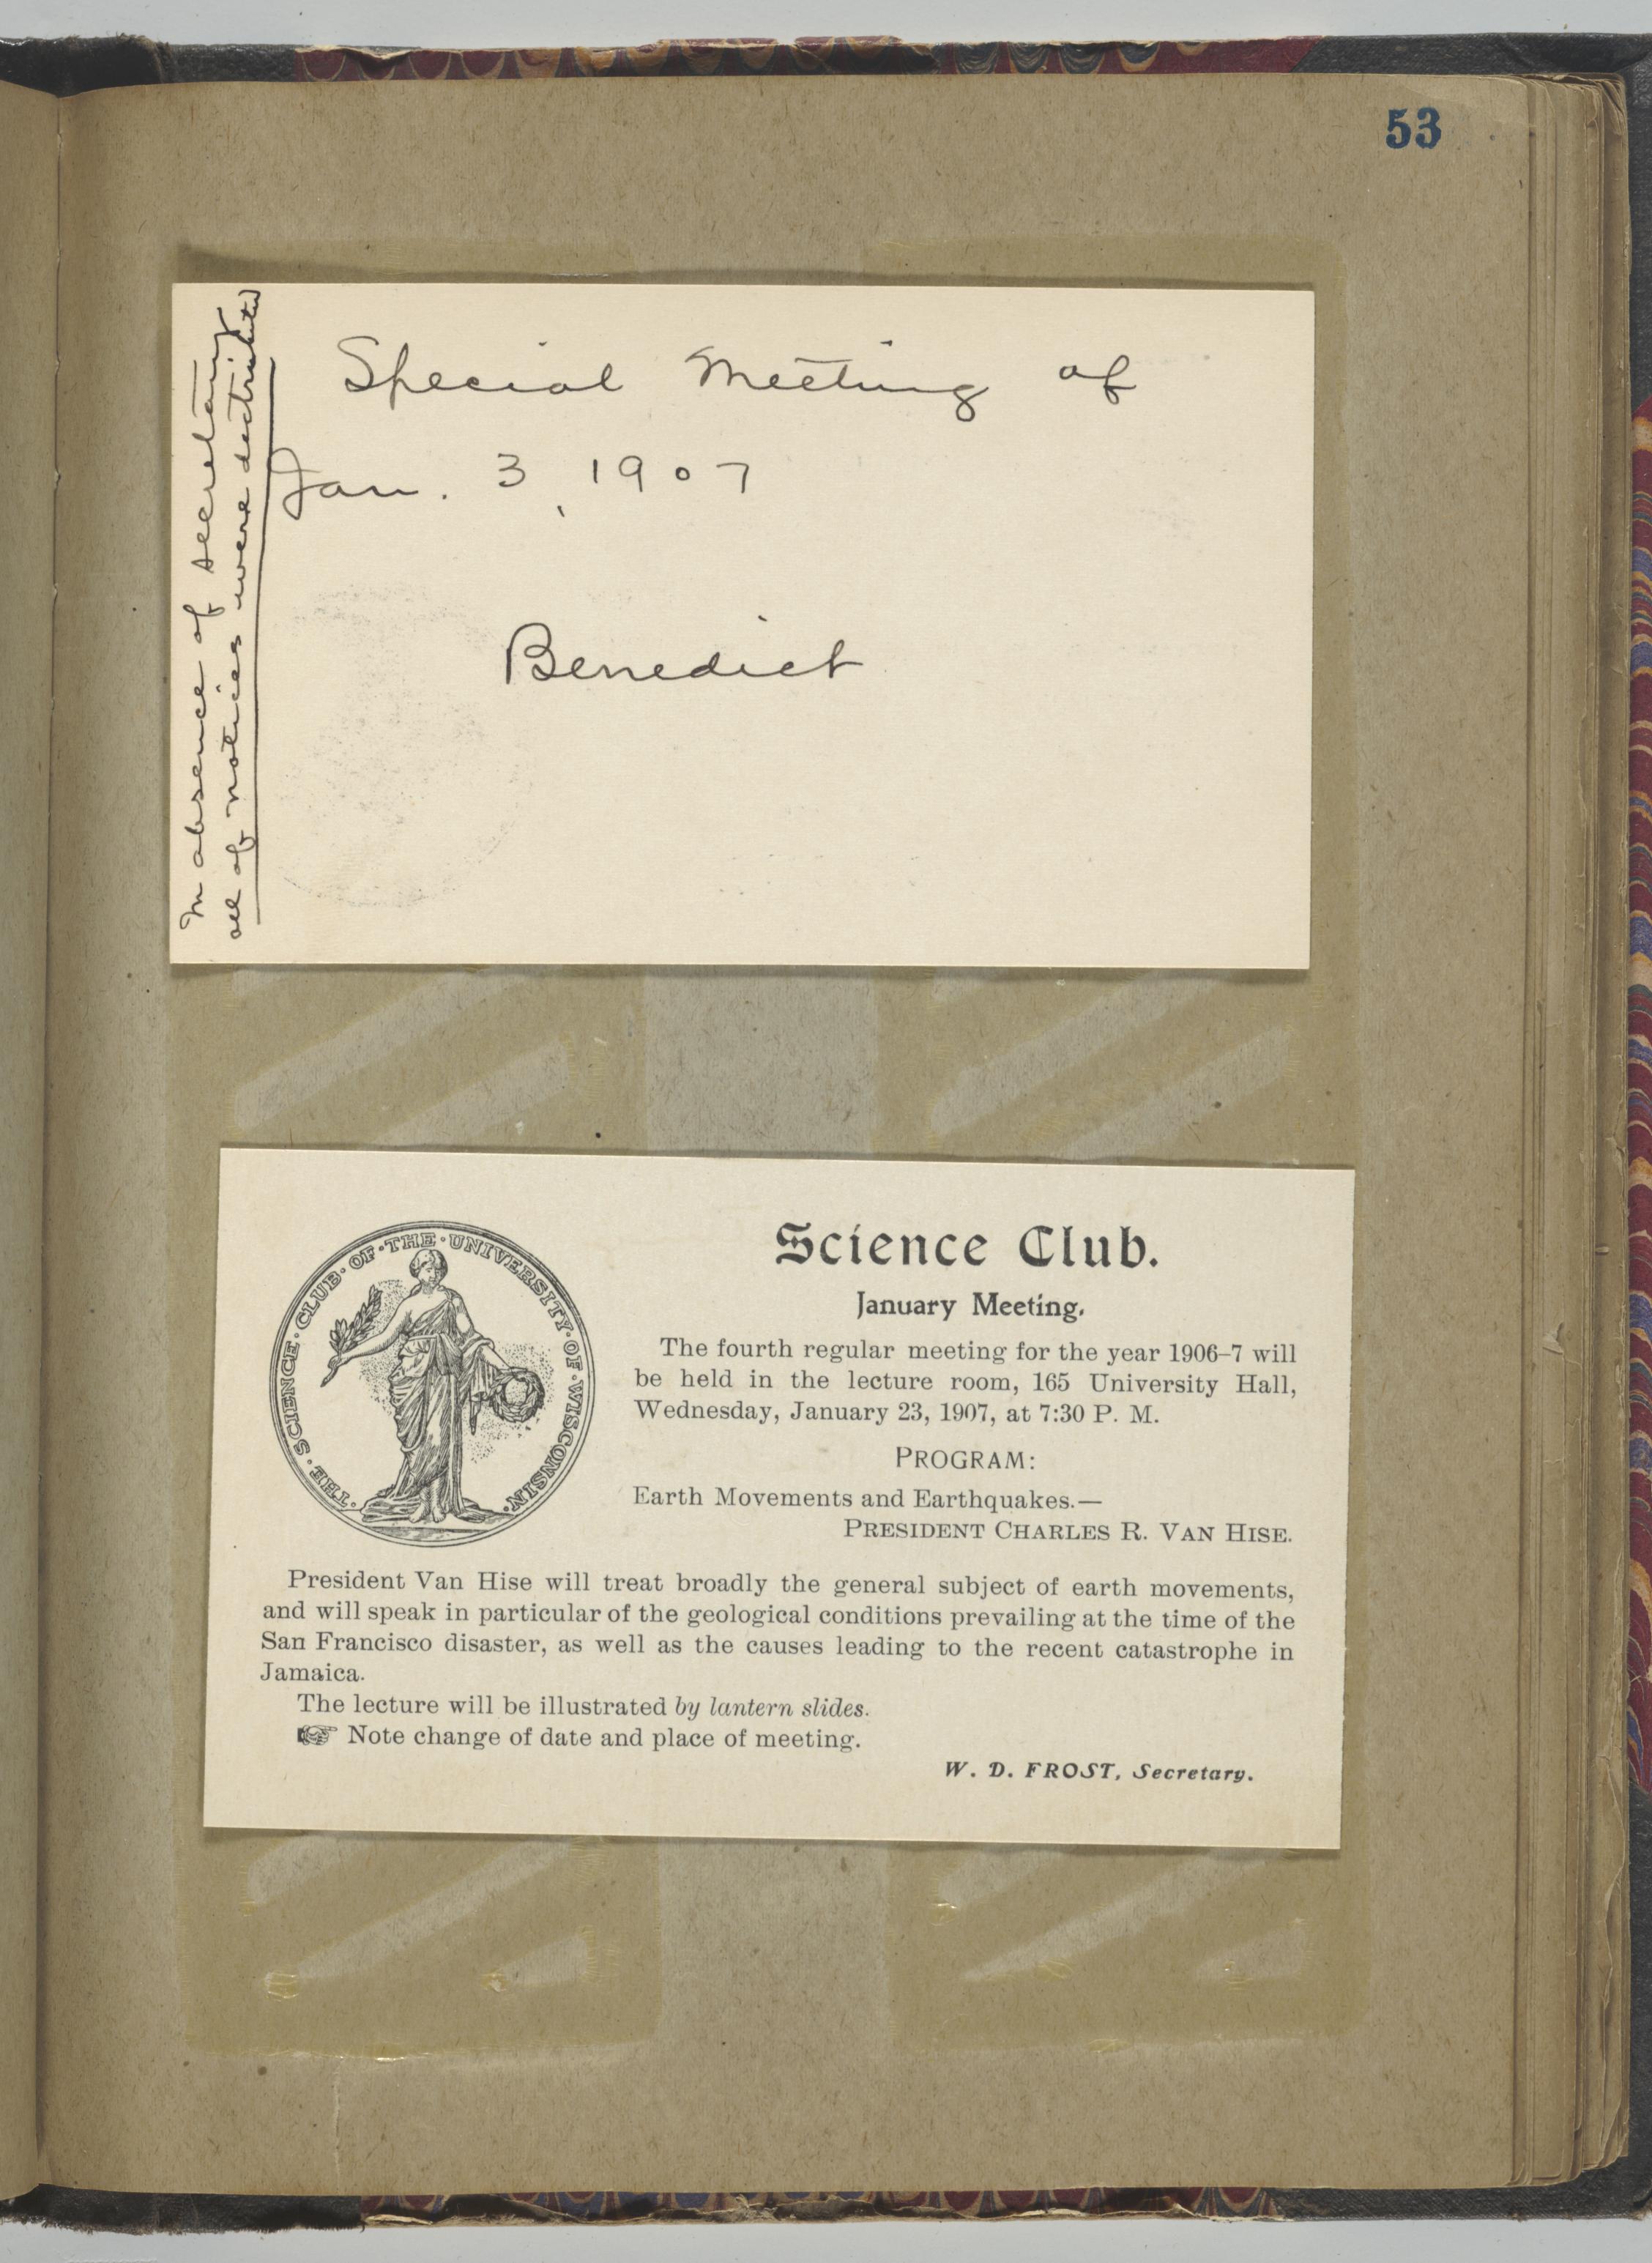 53
Special Meeting of
Jan. 3, 1907
Benedict
In absence of secretary
all of notices were distributed
THE · SCIENCE · CLUB · OF · THE · UNIVERSITY · OF · WISCONSIN ·
Science Club.
January Meeting.
The fourth regular meeting for the year 1906–7 will
be held in the lecture room, 165 University Hall,
Wednesday, January 23, 1907, at 7:30 P. M.
PROGRAM:
Earth Movements and Earthquakes.—
PRESIDENT CHARLES R. VAN HISE.
President Van Hise will treat broadly the general subject of earth movements,
and will speak in particular of the geological conditions prevailing at the time of the
San Francisco disaster, as well as the causes leading to the recent catastrophe in
Jamaica.
The lecture will be illustrated by lantern slides.
☞ Note change of date and place of meeting.
W. D. FROST, Secretary.